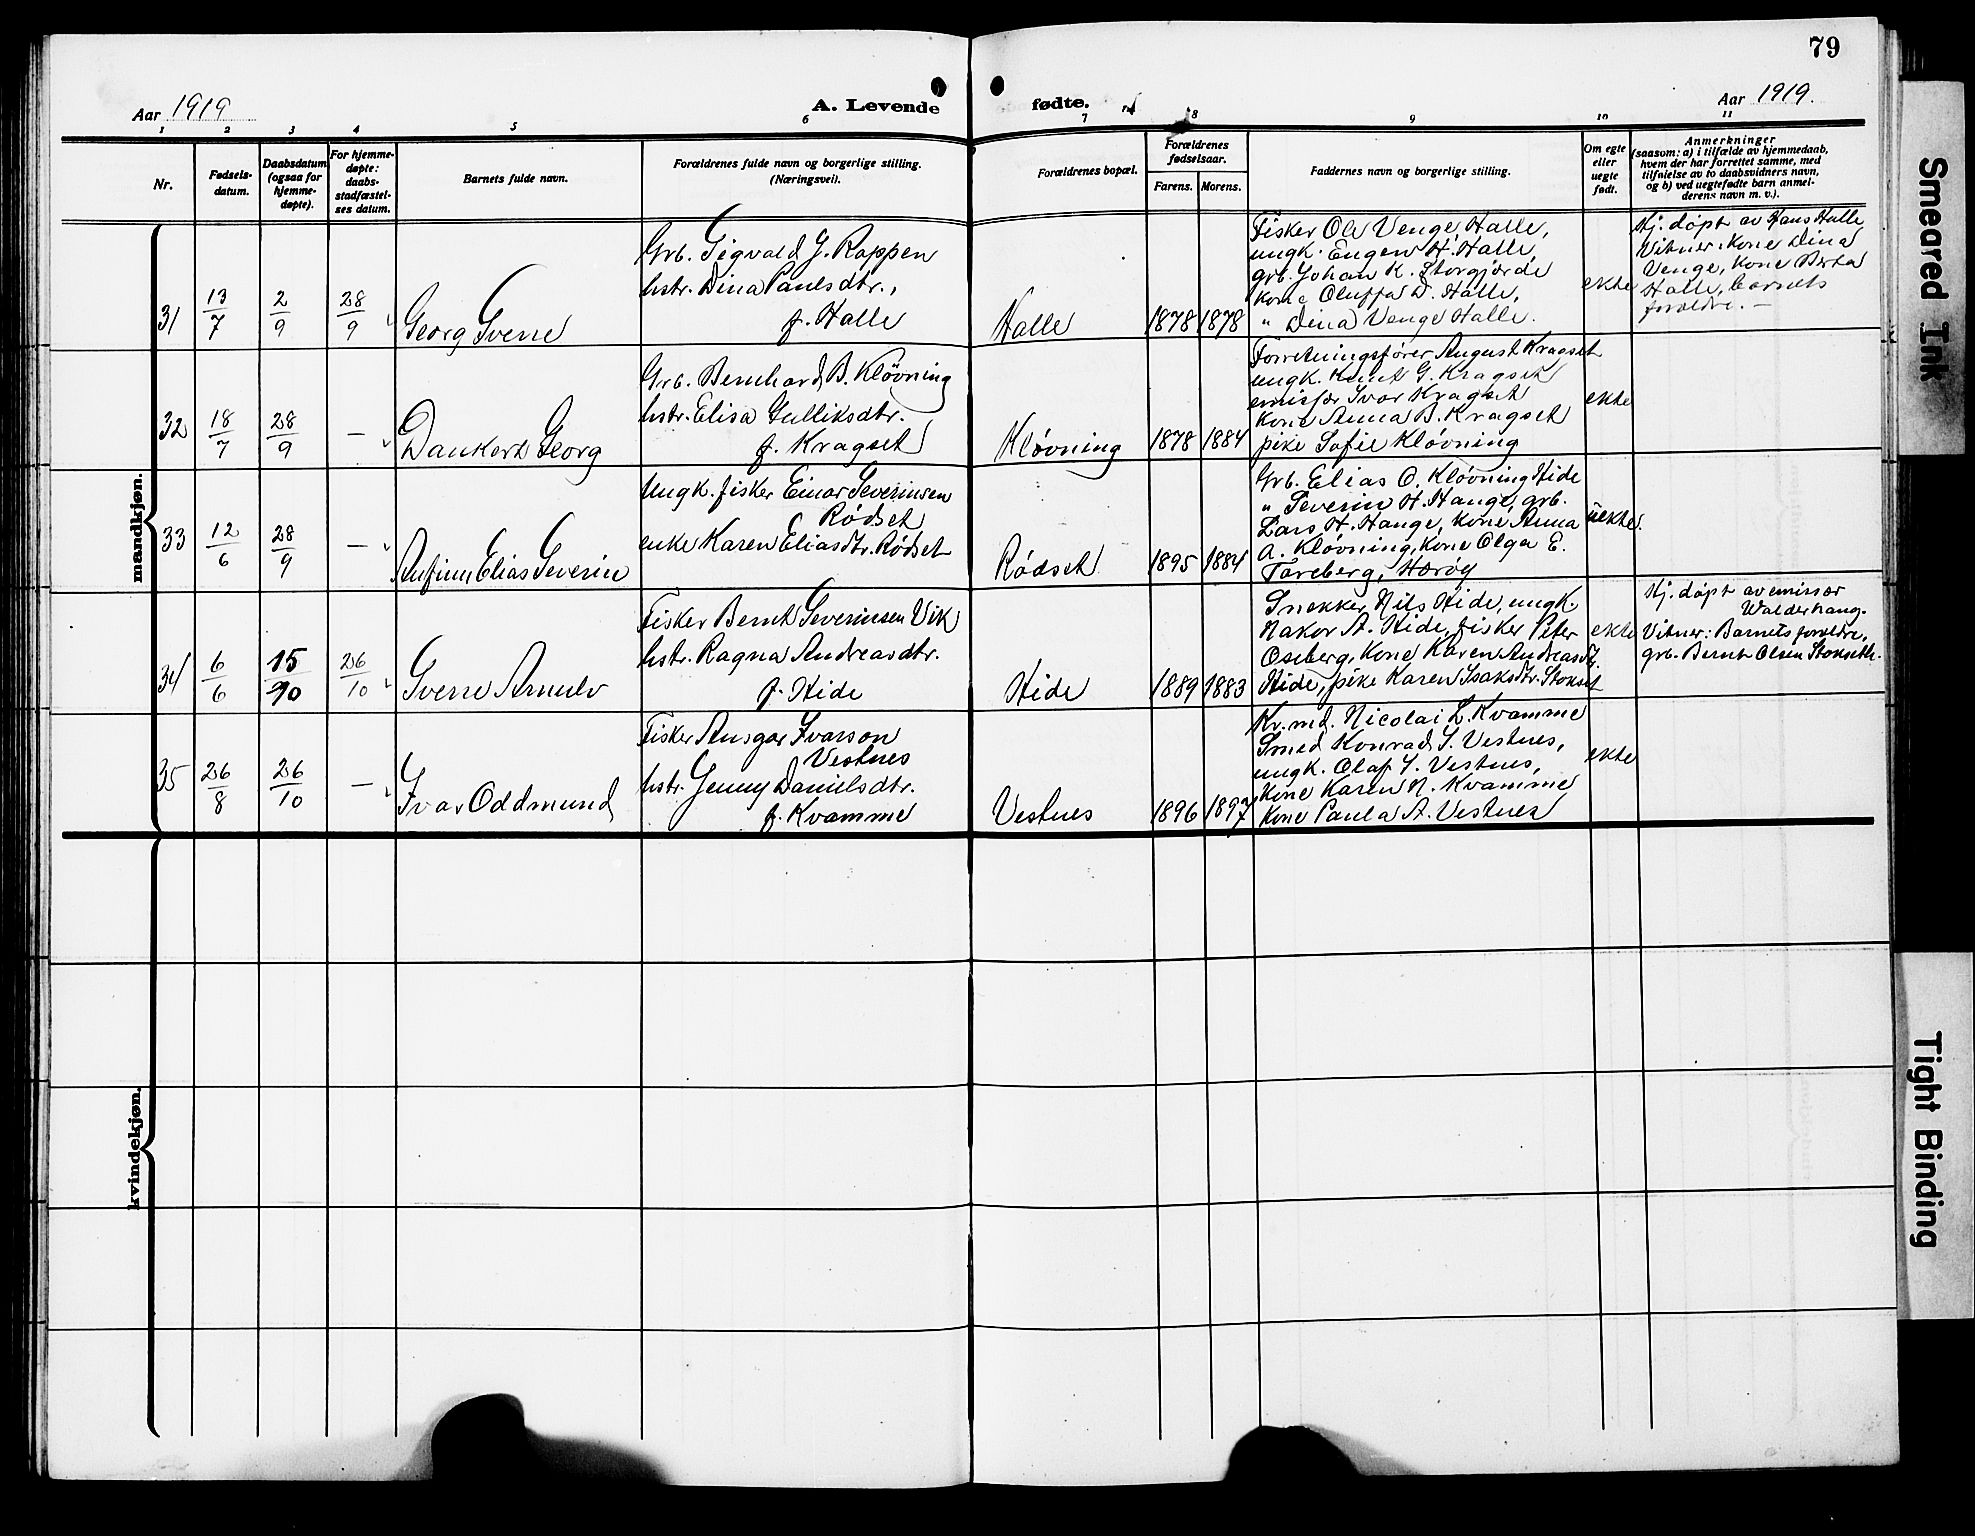 79
Aar 1919
A. Levende
fødte.
Aar 1919.
1 2 3 4 5 6 7 8 9 10 11
Nr.
Fødsels-
datum.
Daabsdatum
(ogsaa for
hjemme-
døpte).
For hjemme-
døpte:
daabs-
stadfæstel-
ses datum.
Barnets fulde navn.
Forældrenes fulde navn og borgerlige stilling.
(Næringsvei).
Forældrenes bopæl.
Forældrenes
fødselsaar.
Farens. Morens.
Faddernes navn og borgerlige stilling.
Om egte
eller
uegte
født.
Anmerkninger
(saasom: a) i tilfælde av hjemmedaab,
hvem der har forrettet samme, med
tilføielse av to daabsvidners navn,
og b) ved uegtefødte barn anmel-
derens navn m. v.).
mandkjøn.
31
13/7
2/9
28/9
Georg Sverre
Grb. Sigvald G. Rappen
hstr. Dina Paulsdtr.,
f. Halle
Halle
1878 1878
Fisker Ole Venge, Halle,
ungk. Eugen H. Halle,
grb. Johan K. Storgjerde
kone Oluffa D. Halle,
" Dina Venge Halle.
ekte
Hj. døpt av Hans Halle
Vitner: Kone Dina
Venge, Kone Berta
Halle, barnets
foreldre. —
32
18/7
28/9
—
Dankert Georg
Grb. Bernhard B. Kløvning
hstr. Elisa Gulliksdtr.
f. Kragset
Kløvning
1878 1884
Forretningsfører August Kragset
ungk. Knut G. Kragset
emissær Ivar Kragset
Kone Anna B. Kragset
pike Sofie Kløvning
ekte
33
12/6
28/9
—
Anfinn Elias Severin
Ungk. fisker Einar Severinsen
Rødset
enke Karen Eliasdtr. Rødset
Rødset
1895 1884
Grb. Elias O. Kløvning Hide
" Severin H. Hauge, grb.
Lars H. Hauge, Kone Anna
A. Kløvning, Kone Olga E.
Tareberg, Herøy
uekte.
34
6/6
15/10
26/10
Sverre Arnulv
Fisker Bernt Severinsen Vik
hstr. Ragna Andreasdtr.
f. Hide
Hide
1889 1883
Snekker Nils Hide, ungk.
Hakon A. Hide, fisker Peter
Oseberg, Kone Karen Andreasdt.
Hide, pike Karen Isaksdtr. Stokset
ekte
Hj. døpt av emissær
Walderhaug.
Vitner: Barnets foreldre,
grb. Bernt Olsen Stokseth.
35
26/8
26/10
—
Ivar Oddmund
Fisker Ansgar Ivarson
Vestnes
hstr. Jenny Danielsdtr.
f. Kvamme
Vestnes
1896 1897
Kv.md. Nicolai L. Kvamme
Smed Konrad S. Vestnes,
ungk. Olaf I. Vestnes,
Kone Karen N. Kvamme
Kone Paula A. Vestnes
ekte
kvindekjøn.
Smeared Ink
Tight Binding